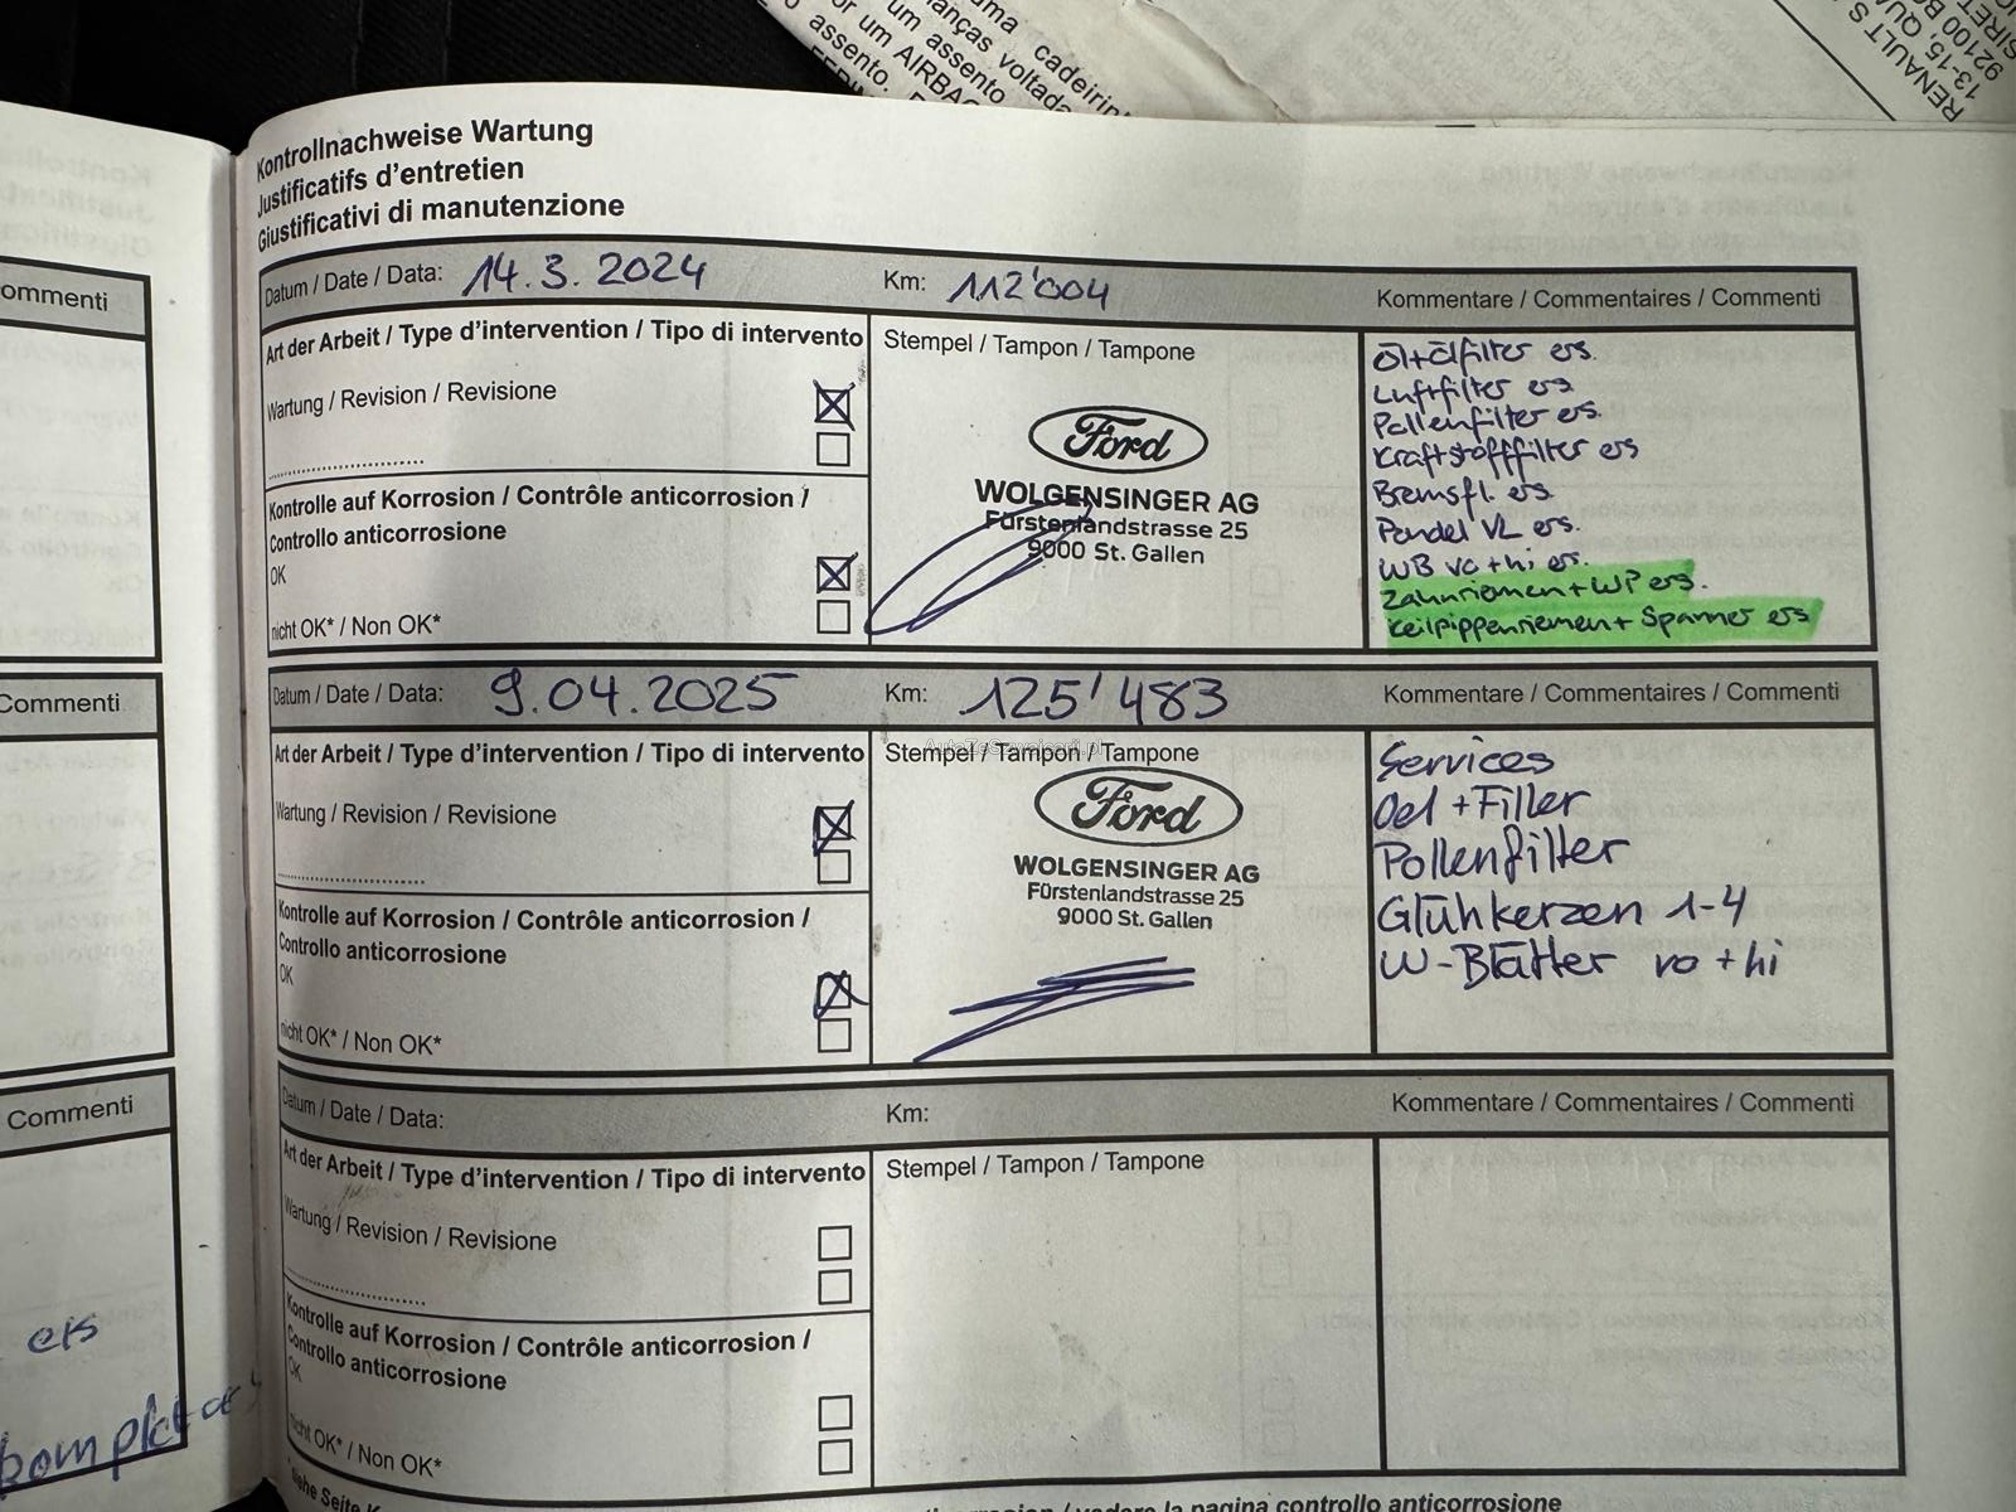 uma cadeirin
anças voltada
um assento
or um AIRBAG
assento.
RENAULT S
13-15, QU
92100 B
SIRET
Kontrollnachweise Wartung
Justificatifs d'entretien
Giustificativi di manutenzione
Datum / Date / Data: 14.3.2024 Km: 112'004 Kommentare / Commentaires / Commenti
Art der Arbeit / Type d'intervention / Tipo di intervento
Wartung / Revision / Revisione
Kontrolle auf Korrosion / Contrôle anticorrosion /
Controllo anticorrosione
OK
nicht OK* / Non OK*
Stempel / Tampon / Tampone
Ford
WOLGENSINGER AG
Fürstenlandstrasse 25
9000 St. Gallen
Öl+Ölfilter ers.
Luftfilter ers
Pollenfilter ers.
Kraftstofffilter ers
Bremsfl. ers.
Pendel VL ers.
WB vo+hi ers.
Zahnriemen+WP ers.
Keilpippenriemen+ Spanner ers
Datum / Date / Data: 9.04.2025 Km: 125'483 Kommentare / Commentaires / Commenti
Art der Arbeit / Type d'intervention / Tipo di intervento
Wartung / Revision / Revisione
Kontrolle auf Korrosion / Contrôle anticorrosion /
Controllo anticorrosione
OK
nicht OK* / Non OK*
Stempel / Tampon / Tampone
AutaZeSzwajcarii.pl
Ford
WOLGENSINGER AG
Fürstenlandstrasse 25
9000 St. Gallen
Services
Oel + Filler
Pollenfilter
Glühkerzen 1-4
W-Blätter vo + hi
Datum / Date / Data: Km: Kommentare / Commentaires / Commenti
Art der Arbeit / Type d'intervention / Tipo di intervento
Wartung / Revision / Revisione
Kontrolle auf Korrosion / Contrôle anticorrosion /
Controllo anticorrosione
OK
nicht OK* / Non OK*
Stempel / Tampon / Tampone
siehe Seite
/ vedere la pagina controllo anticorrosione
ommenti
Commenti
Commenti
ers